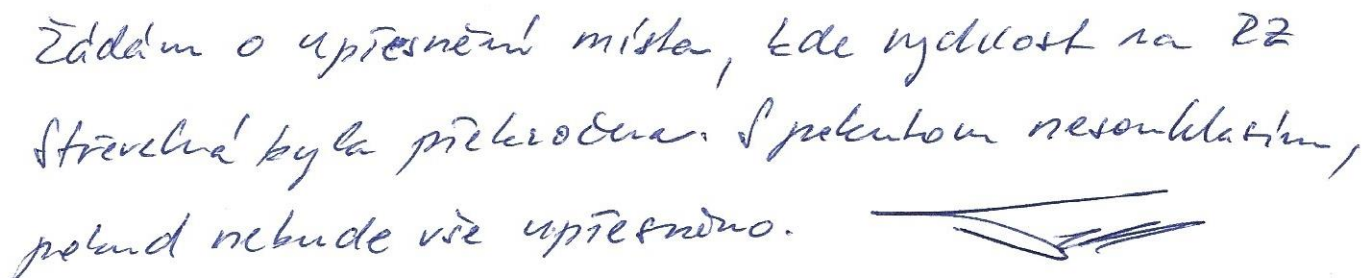 Žádám o upřesnění místa, kde rychlost na RZ
Střevelná byla překročena. S pokutou nesouhlasím,
pokud nebude vše upřesněno.